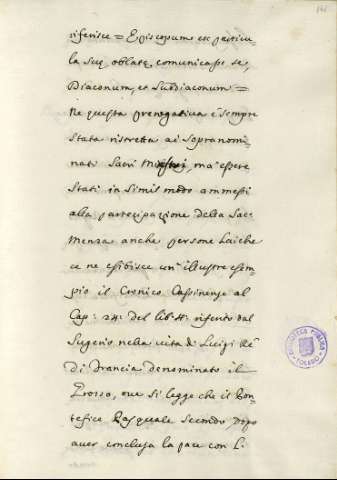 141
riferisce = Episcopum ex particu-
la suę oblatę comunicasse se,
Diaconum, et Subdiaconum =
Ne questa prerogativa è sempre
stata ristretta ai sopranomi-
nati Sacri Ministri, ma essere
stati in simil modo ammessi
alla partecipazione della Sac:
Menza anche persone Laiche
ce ne esibisce un' illustre esem-
pio il Cronico Cassinense al
Cap: 24: del lib: 4: riferito dal
Sugerio nella vita di Luigi Rè
di Francia denominato il
Grosso, ove si legge che il Pon-
tefice Pasquale Secondo dopo
aver conclusa la pace con L.
BIBLIOTECA PUBLICA
TOLEDO